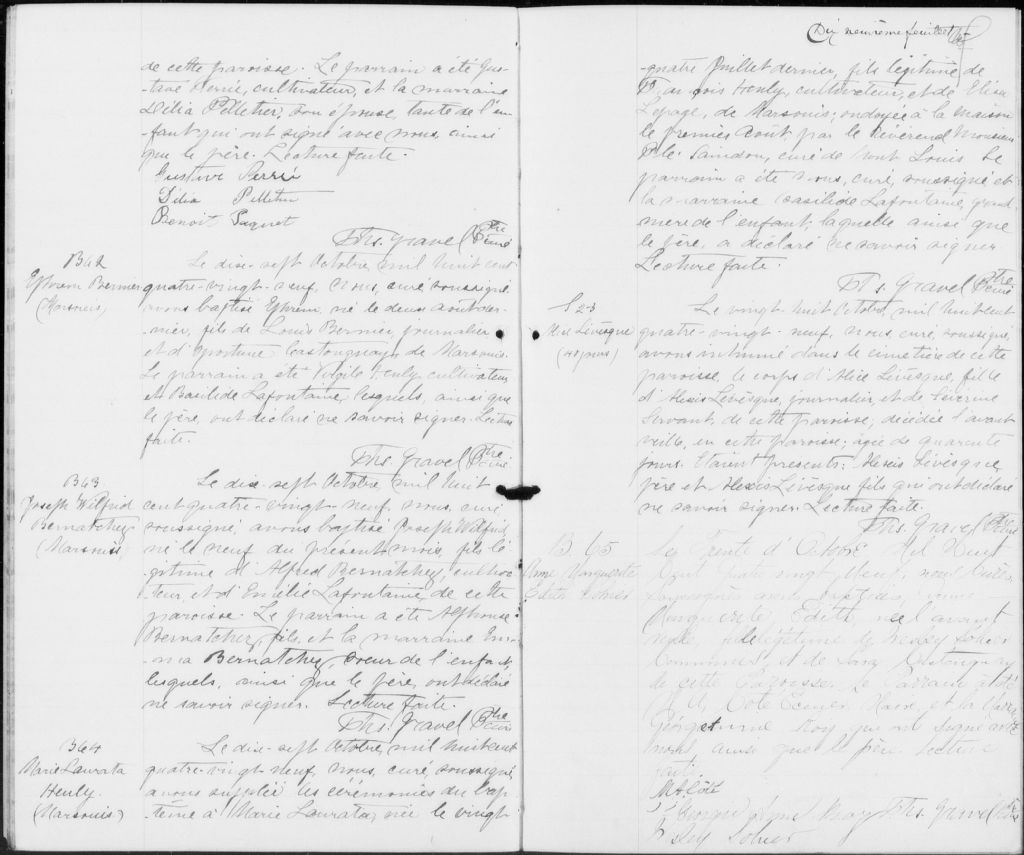 de cette paroisse. Le parrain a été Gus-
tave Perrié, cultivateur, et la marraine
Délia Pelletier, son épouse, tante de l'en-
fant, qui ont signé avec nous, ainsi
que le père. Lecture faite.
Gustave Perrié
Délia Pelletier
Benoit Paquet
Ths. Gravel Ptre curé
B62
Ephrem Bernier
(Marsouis)
Le dix-sept Octobre, mil huit cent
quatre-vingt-neuf, nous, curé soussigné
avons baptisé Ephrem, né le deux août der-
nier, fils de Louis Bernier, journalier
et d' Castonguay, de Marsouis.
Le parrain a été Virgile Henly, cultivateur,
et Basilide Lafontaine, lesquels, ainsi que
le père, ont déclaré ne savoir signer. Lecture
faite.
Ths. Gravel Ptre curé
B63
Joseph Wilfrid
Bernatchez
(Marsouis)
Le dix-sept Octobre, mil huit
cent quatre-vingt-neuf, nous, curé
soussigné, avons baptisé Joseph Wilfrid,
né le neuf du présent mois, fils lé-
gitime d'Alfred Bernatchez, cultiva-
teur, et d'Emélie Lafontaine, de cette
paroisse. Le parrain a été Alphonse
Bernatchez, fils, et la marraine Em-
ma Bernatchez, soeur de l'enfant,
lesquels, ainsi que le père, ont déclaré
ne savoir signer. Lecture faite.
Ths. Gravel Ptre curé
B64
Marie Laurata
Henly
(Marsouis)
Le dix-sept Octobre, mil huit cent
quatre-vingt-neuf, nous, curé, soussigné,
avons suppléé les cérémonies du bap-
tême à Marie Laurata, née le vingt-
Dix neuvième feuillet
-quatre Juillet dernier, fils légitime de
François Henly, cultivateur, et de Elisa
Lepage, de Marsouis; ondoyée à la maison
le premier Août, par le Révérend Monsieur
Saindon, curé de Mont Louis. Le
parrain a été nous, curé, soussigné et
la marraine Basilide Lafontaine, grand
mère de l'enfant, laquelle ainsi que
le père, a déclaré ne savoir signer
Lecture faite.
Ths. Gravel Ptre curé
S23
Alice Lévesque
(40 jours)
Le vingt-huit Octobre, mil huit cent
quatre-vingt-neuf, nous, curé, soussigné,
avons inhumé dans le cimetière de cette
paroisse, le corps d'Alice Lévesque, fille
d'Alexis Lévesque, journalier, et de Séverine
Servant, de cette paroisse, décédée l'avant
veille, en cette paroisse; agée de quarante
jours. Etaient présents: Alexis Lévesque,
père et Alexis Lévesque fils qui ont déclaré
ne savoir signer. Lecture faite.
Ths. Gravel Ptre curé
B. 65
Anne Marguerite
Edith
Le Trente d'Octobre Mil Huit
Cent quatre vingt Neuf, nous Curé
Soussigné avons baptisé Anne
Marguerite Edith, née l'avant
veille, fille légitime de
et de Castonguay
de cette Paroisse. Le Parrain a été
Coté Ecuyer Maire, et la
Georgiana Roy qui ont signé avec
nous, ainsi que le père. Lecture
faite.
Coté
Georgiana Roy Ths. Gravel Ptre